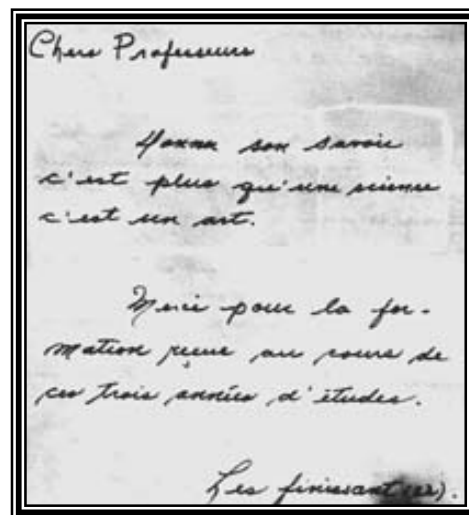 Chers Professeurs
Donner son savoir
c'est plus qu'une science
c'est un art.
Merci pour la for-
mation reçue au cours de
ces trois années d'études.
Les finissant(es).